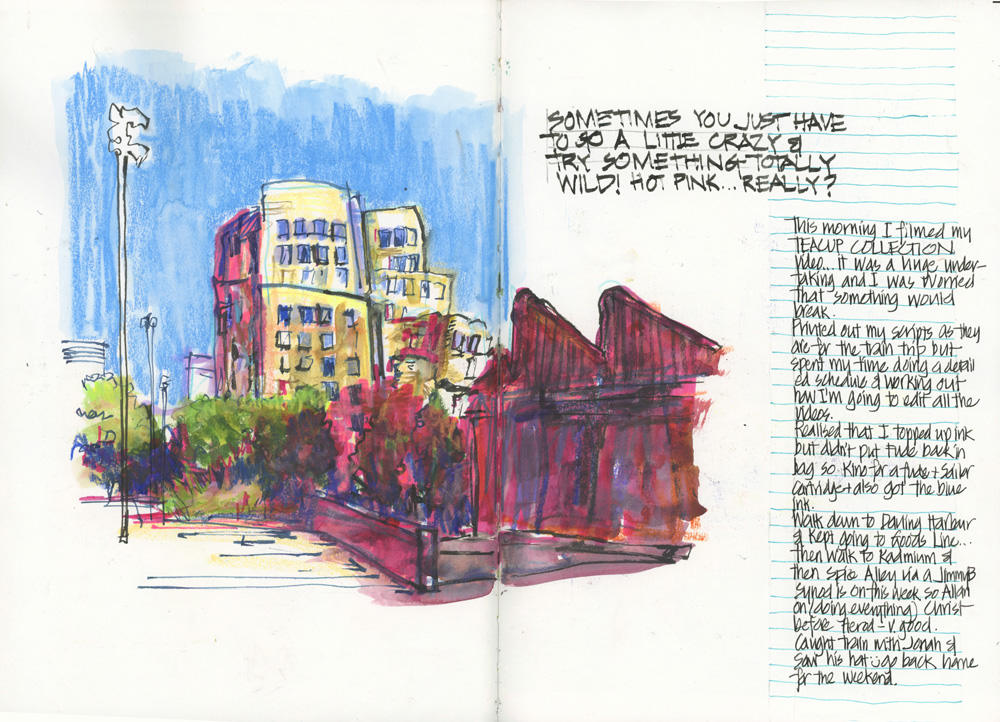 SOMETIMES YOU JUST HAVE
TO GO A LITTLE CRAZY &
TRY SOMETHING TOTALLY
WILD! HOT PINK... REALLY?
This morning I filmed my
TEACUP COLLECTION
Video... it was a huge under-
taking and I was worried
that something would
break.
Printed out my scripts as they
are for the train trip but
spent my time doing a detail
ed schedule & working out
how I'm going to edit all the
videos.
Realised that I topped up ink
but didn't put Fude back in
bag so Kino for a fude + Sailor
cartridge + also got the blue
ink.
Walk down to Darling Harbour
& kept going to Goods Line...
then walk to Kadmium &
then Spice Alley via a JimmyB
Synod is on this week so Allan
on (doing everything) Christ
before Herod - v. good.
Caught train with Jonah &
saw his hat go back home
for the weekend.